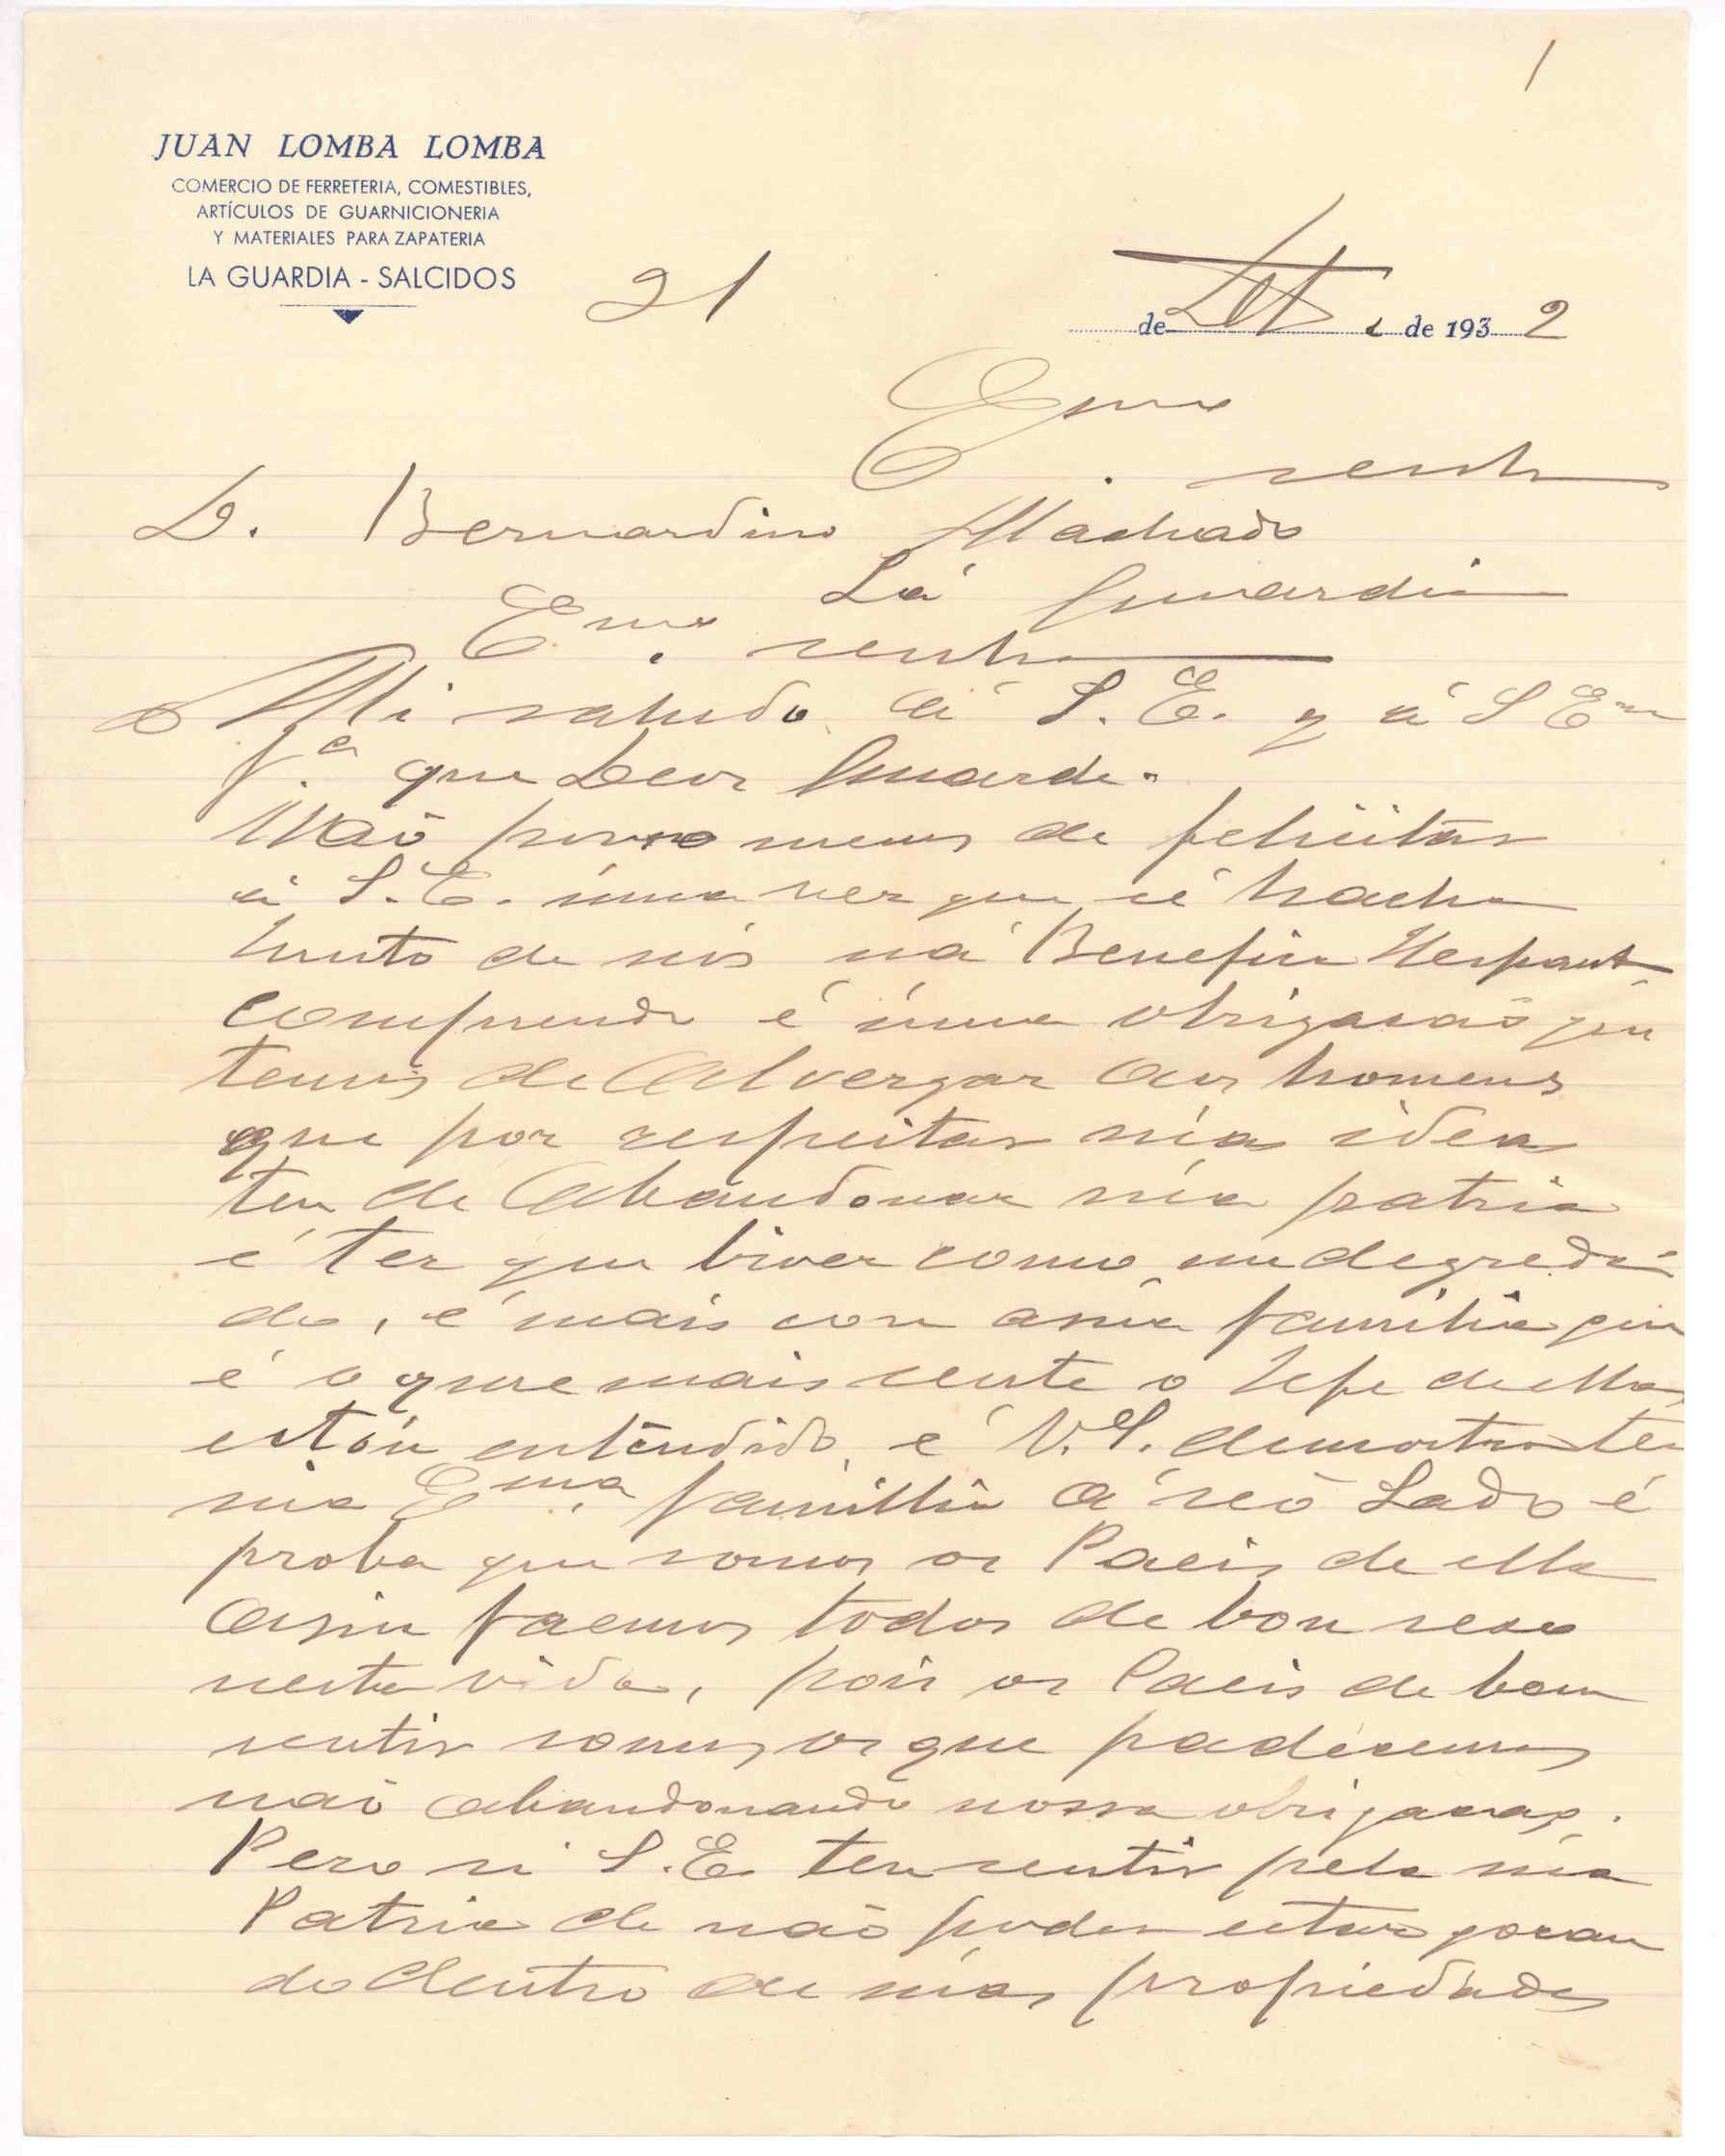 1
JUAN LOMBA LOMBA
COMERCIO DE FERRETERIA, COMESTIBLES,
ARTÍCULOS DE GUARNICIONERIA
Y MATERIALES PARA ZAPATERIA
LA GUARDIA - SALCIDOS
21 de de 1932
Exmo
D. Bernardino Machado
La Guardia
Exmo.
Mi saludo á S. E. y á S Exma
F.ª que Deos Guarde.
Não menos de feliçitar
á S. E. úma vez que sé hacha
Junto de nós ná
comprendo é úma obrigacaõ que
temos de Alvergar aos homens
que por respeitar súa idea
ten de Abandonar súa patria
é ter que biver como un degreda
do, é mais con a súa familia que
é o que mais sente o Jefe de ella,
estóu entendido, é V.S. demostra ter
sua Exma. familia a seó Lado é
proba que somos os Paeis de ella
asin faemos todos de bon seso
nesta vida, pois os Paeis de bom
sentir somos os que padécemos
naõ abandonando nossa obrigacaõ.
Pero si S. E. ten sentir pela súa
Patria de naõ poder estar gozan
do dentro de súas propiedades